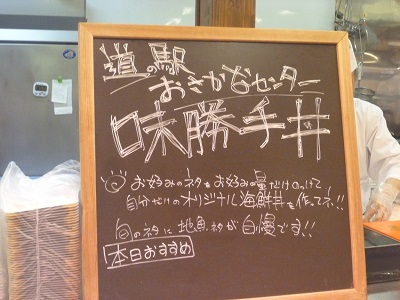 道の駅
おさかなセンター
味勝手丼
お好みのネタをお好みの量だけのっけて
自分だけのオリジナル海鮮丼を作ってネ!!
旬のネタに地魚ネタが自慢です!!
本日おすすめ